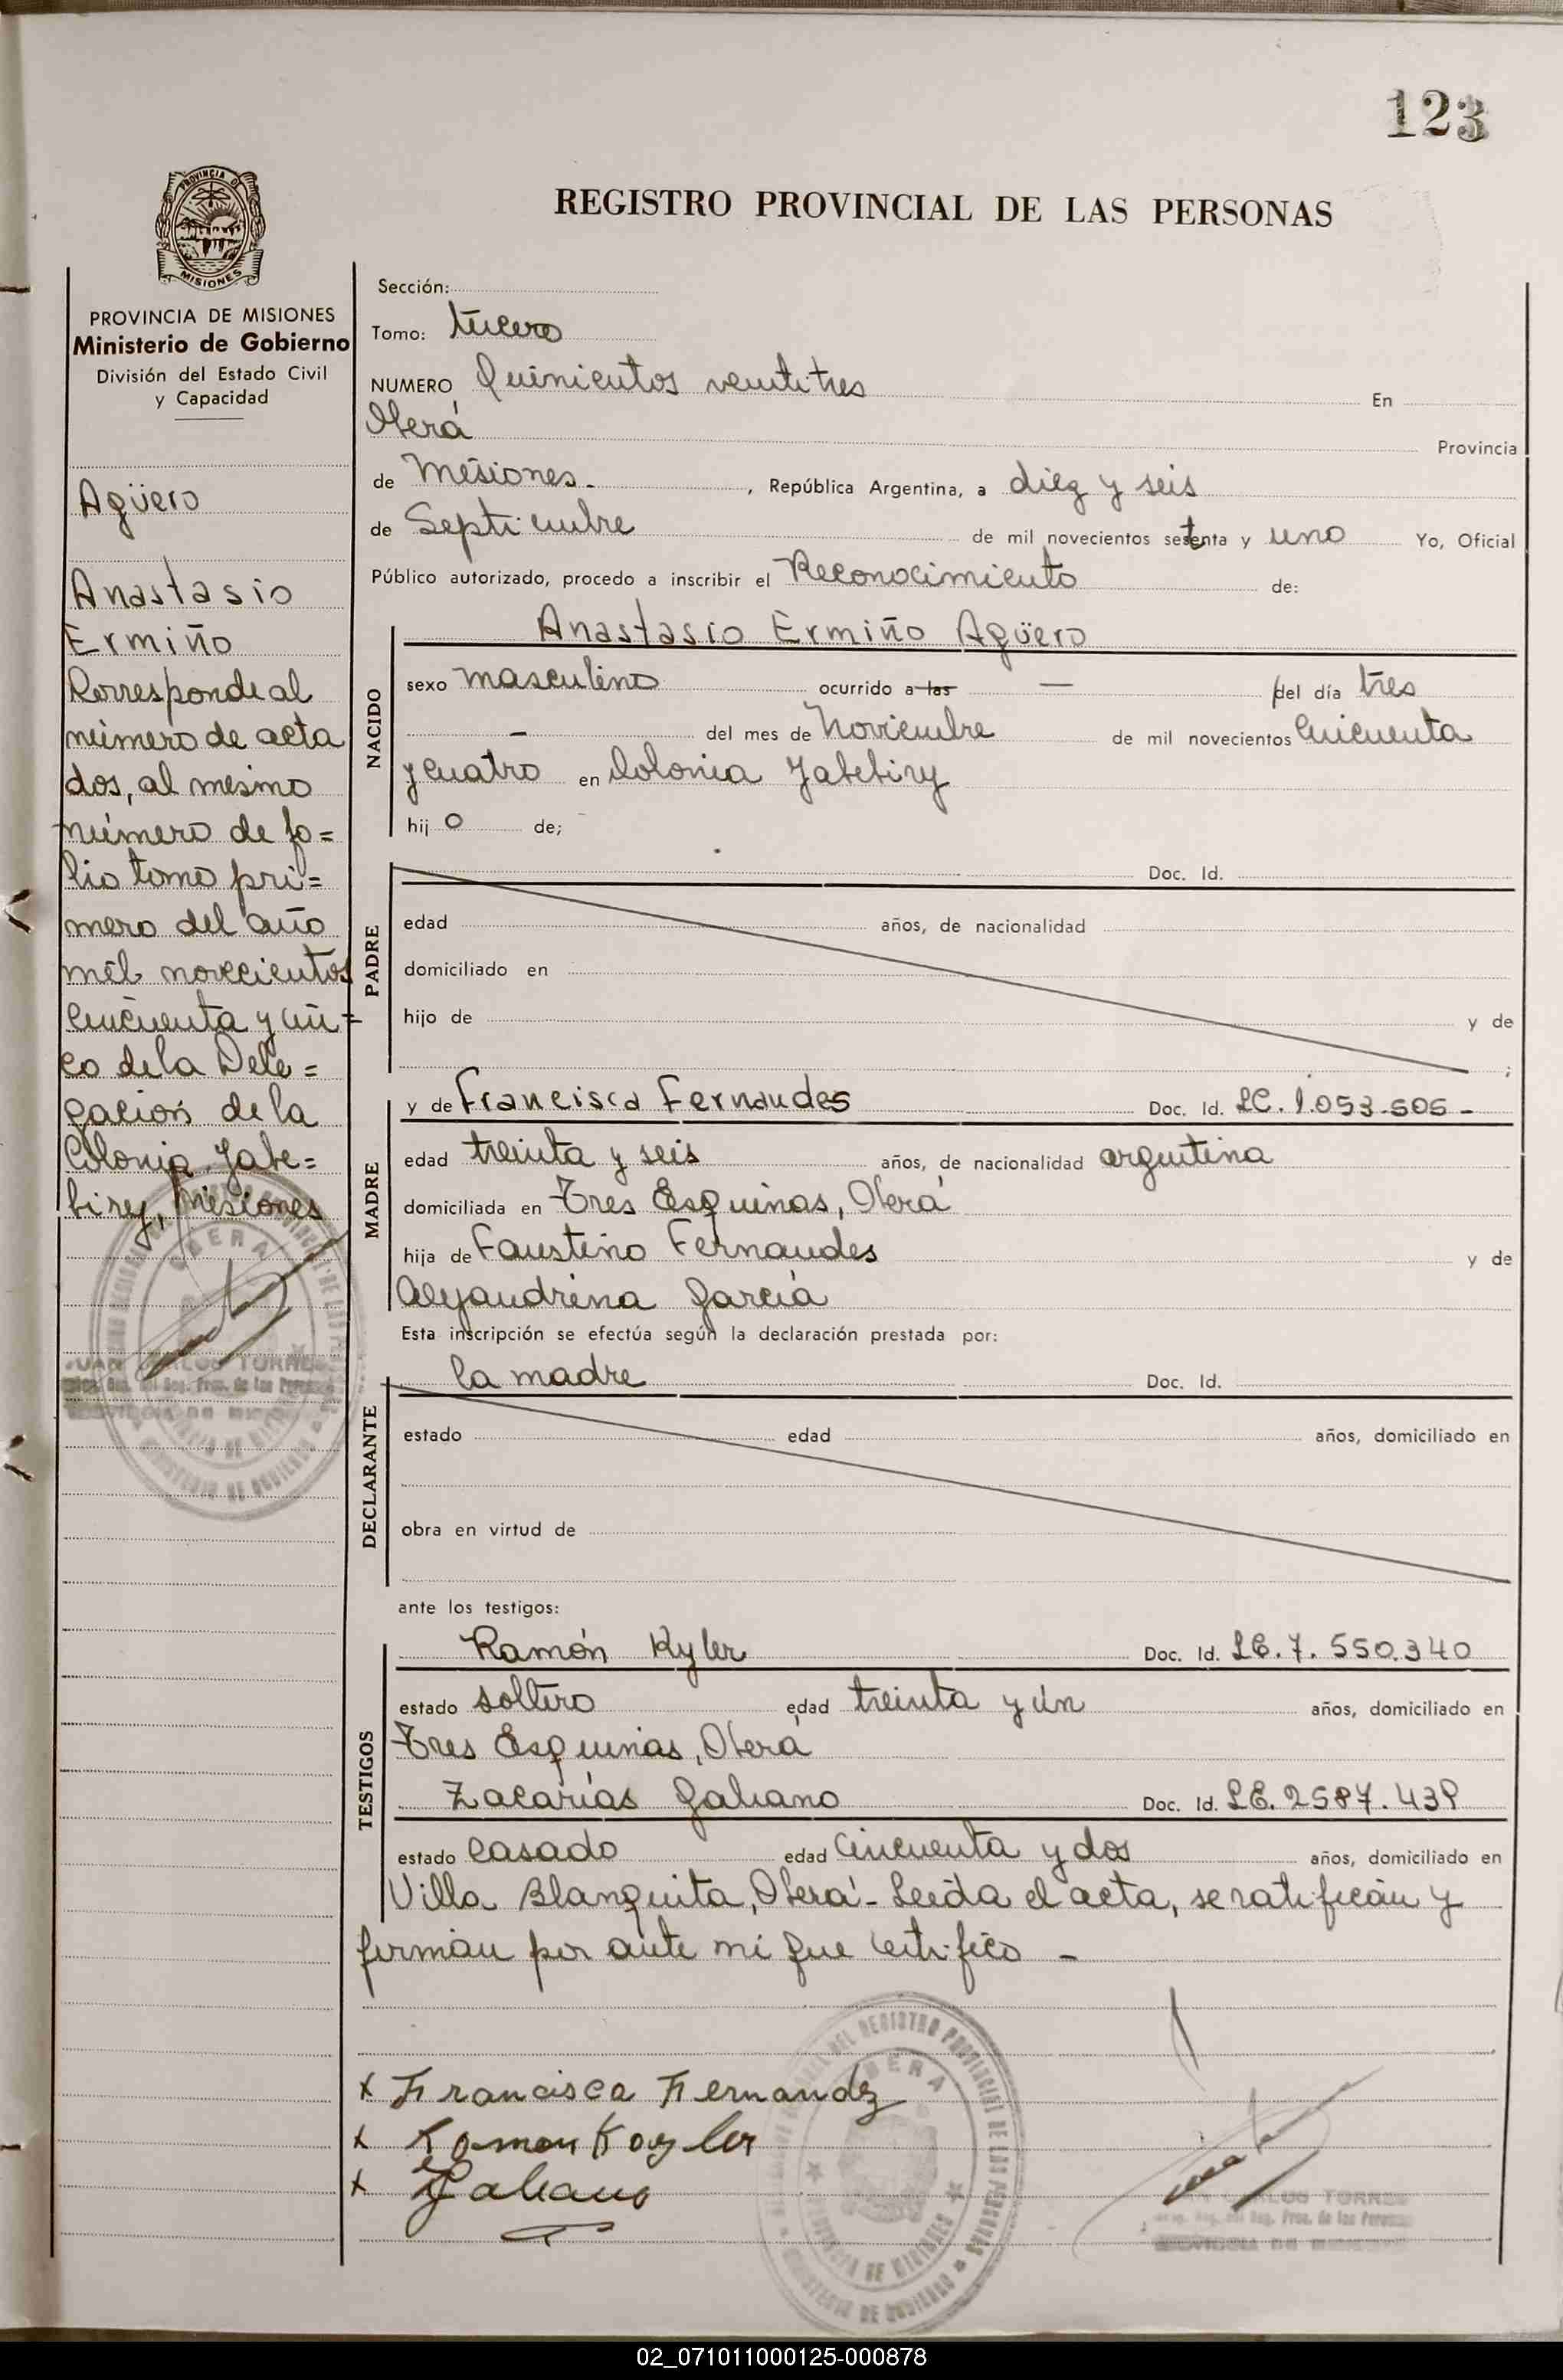 123
PROVINCIA DE
MISIONES
REGISTRO PROVINCIAL DE LAS PERSONAS
PROVINCIA DE MISIONES
Ministerio de Gobierno
División del Estado Civil
y Capacidad
Agüero
Anastasio
Ermiño
Corresponde al
número de acta
dos, al mismo
número de fo=
lio tomo pri=
mero del año
mil novecientos
cincuenta y cin=
co de la Dele=
gación de la
Colonia Yabe=
biry, Misiones
OBERA
JUAN CARLOS TORRES
Sección:
Tomo: tercero
NUMERO Quinientos veintitres En
Oberá Provincia
de Misiones- , República Argentina, a diez y seis
de Septiembre de mil novecientos setenta y uno Yo, Oficial
Público autorizado, procedo a inscribir el Reconocimiento de:
NACIDO
Anastasio Ermiño Agüero
sexo masculino ocurrido a las — del día tres
- del mes de Noviembre de mil novecientos cincuenta
y cuatro en Colonia Yabebiry
hij o de;
PADRE
Doc. Id.
edad años, de nacionalidad
domiciliado en
hijo de y de
;
MADRE
y de Francisca Fernandes Doc. Id. LC. 1.053-505-
edad treinta y seis años, de nacionalidad argentina
domiciliada en Tres Esquinas, Oberá
hija de Faustino Fernandes y de
Alejandrina García
Esta inscripción se efectúa según la declaración prestada por:
DECLARANTE
la madre Doc. Id.
estado edad años, domiciliado en
obra en virtud de
ante los testigos:
TESTIGOS
Ramón Kyler Doc. Id. LE. 7. 550.340
estado soltero edad treinta y ún años, domiciliado en
Tres Esquinas, Oberá
Zacarías Galeano Doc. Id. LE. 2587.439
estado casado edad cincuenta y dos años, domiciliado en
Villa Blanquita, Oberá- Leída el acta, se ratifican y
firman por ante mí que certifico -
x Francisca Fernandez
x Ramon Koyler
x Galeano
OBERA
PROVINCIA DE MISIONES
CARLOS TORRES
02_071011000125-000878